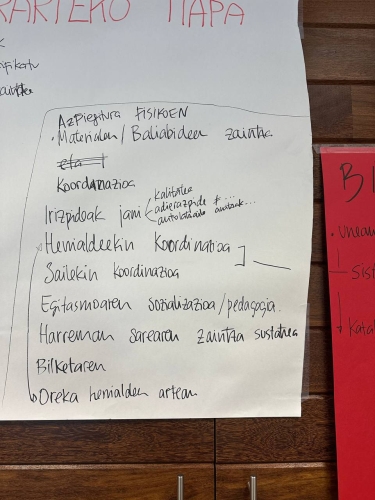 RARTEKO MAPA
AZPIEGITURA FISIKOEN
. Materialen / Baliabideen zaintza
eta
Koordinazioa
Irizpideak jarri
kalitatea
adierazpide ≠ ...
Herrialdeekin Koordinazioa
Sailekin koordinazioa
Egitasmoaren sozializazioa / pedagogia.
Harreman sarearen zaintza sustatzea
Bilketaren
Oreka herrialdeen artean
B